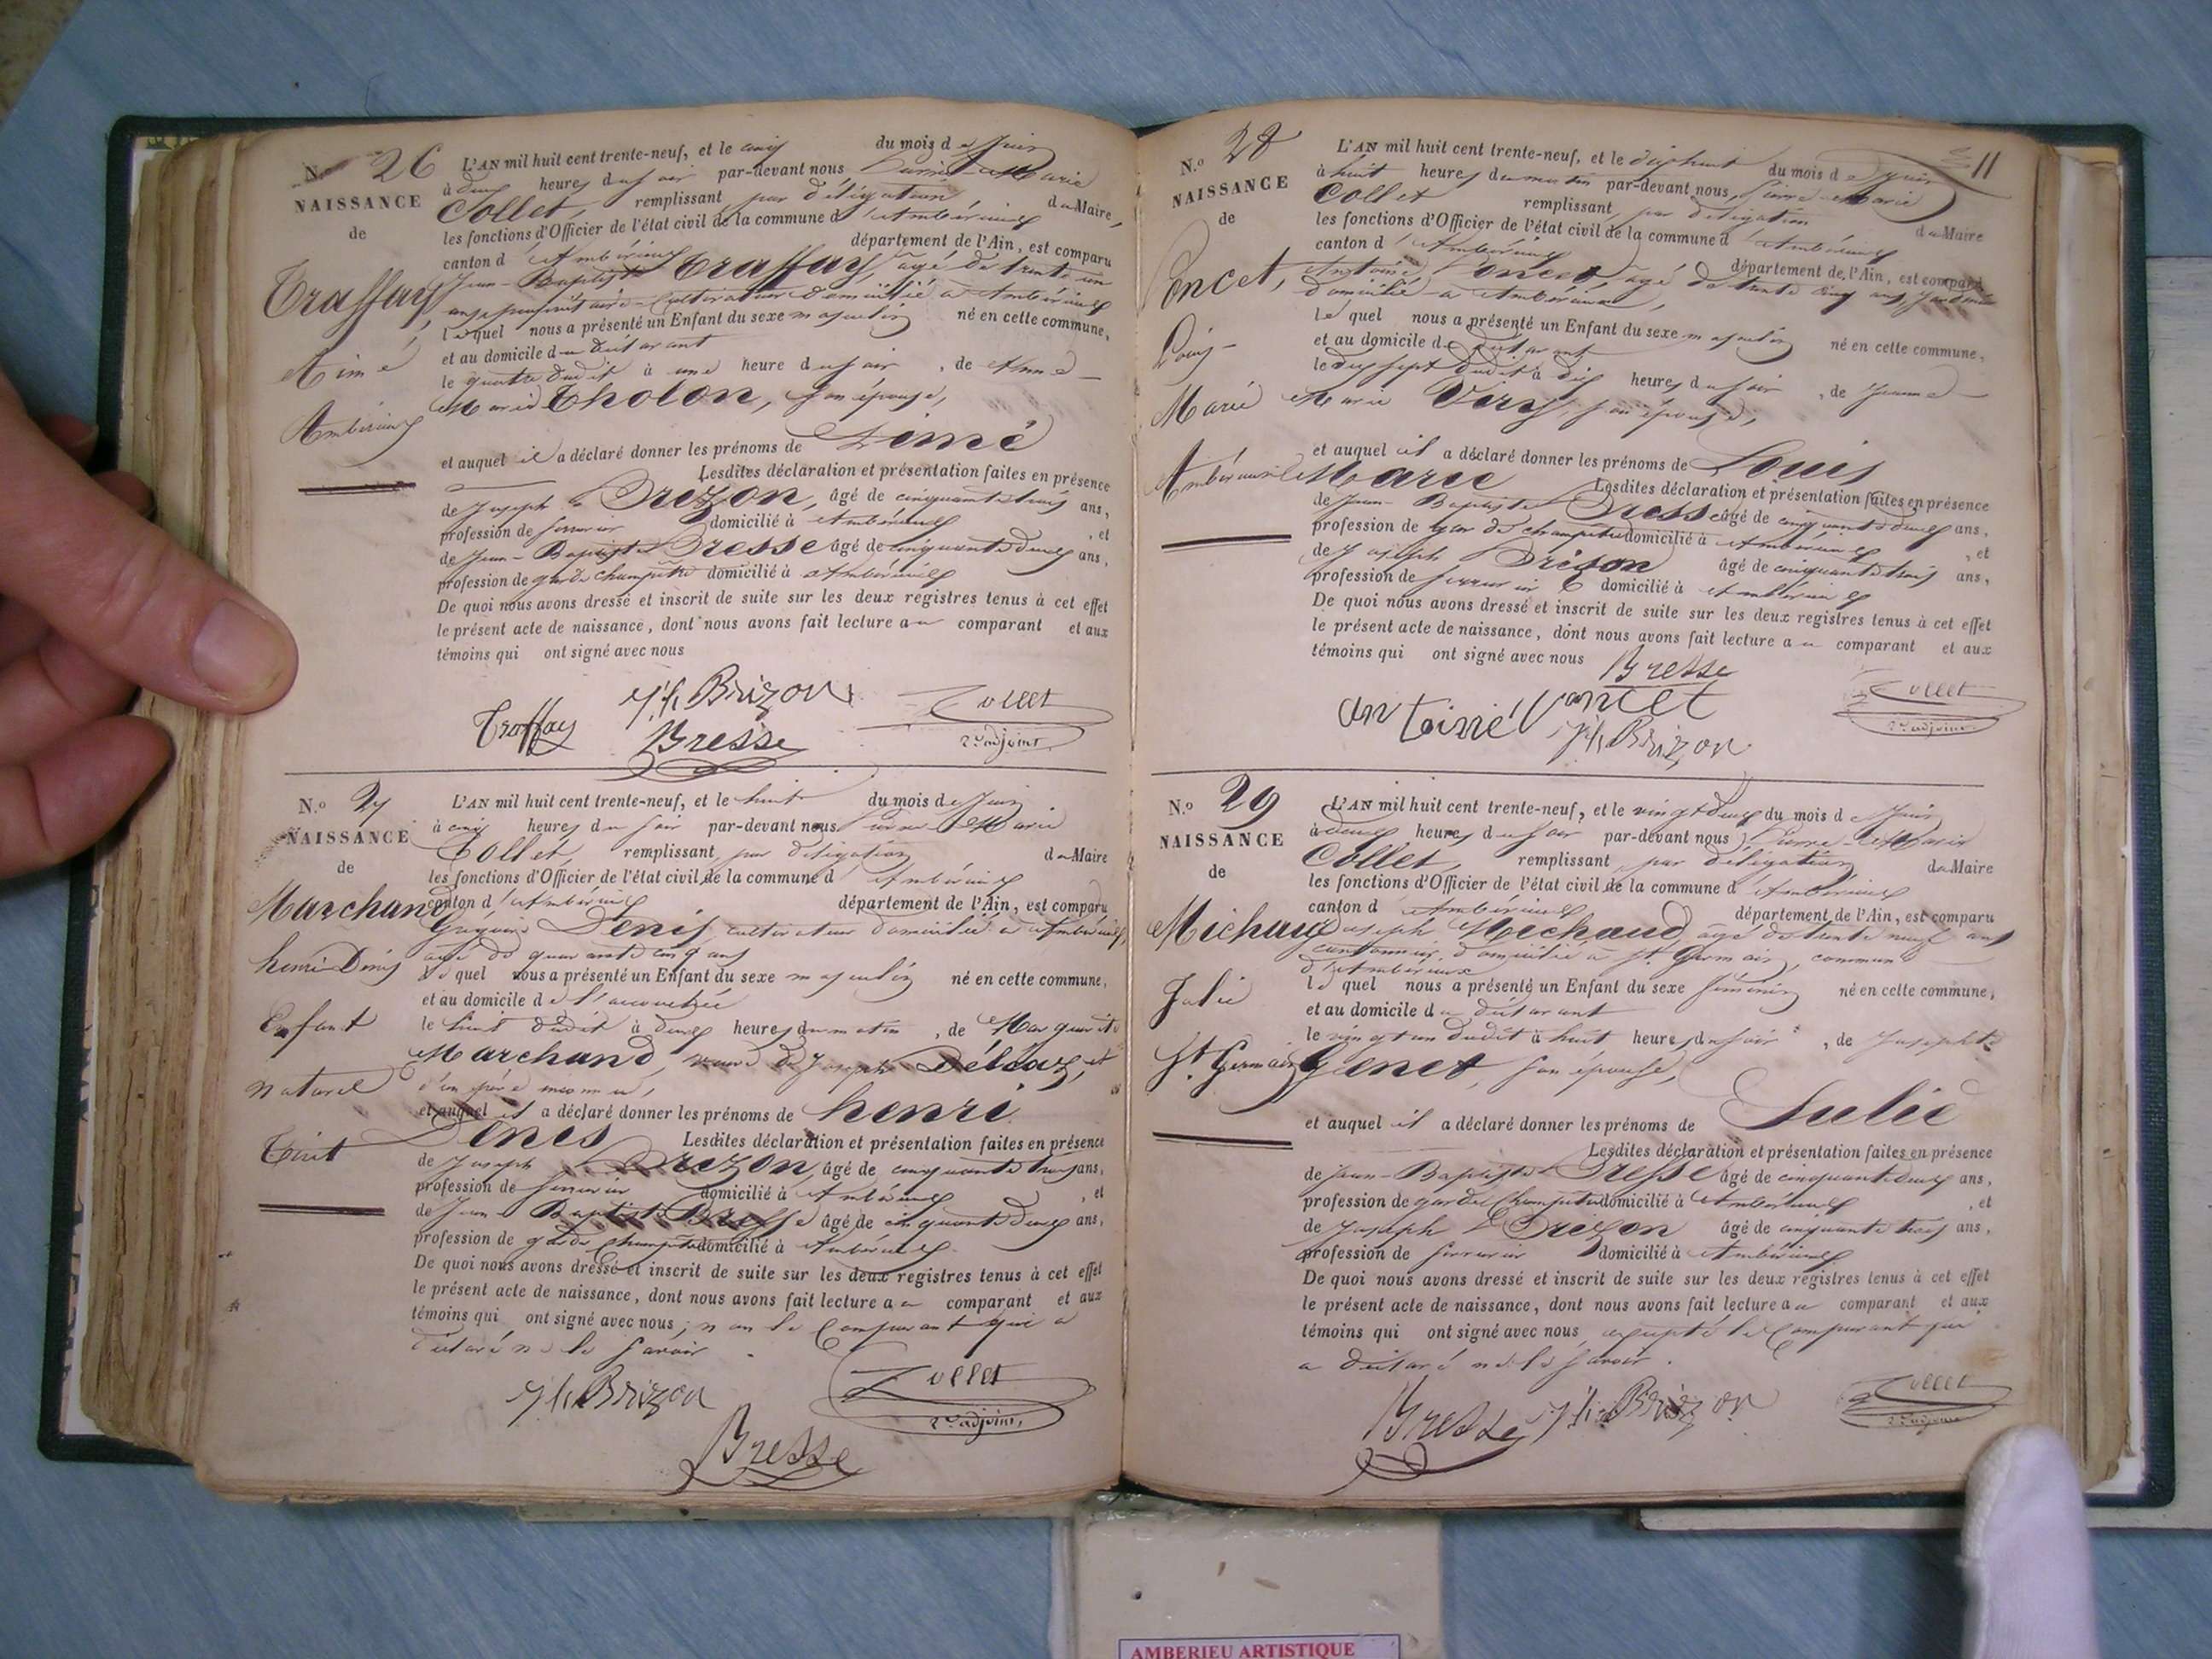 N.º 26
NAISSANCE
de
Traffay,
Aimé
Ambérieux
L'AN mil huit cent trente-neuf, et le cinq du mois de Juin
à deux heures du soir par-devant nous Pierre-Marie
Collet, remplissant par délégation du Maire,
les fonctions d'Officier de l'état civil de la commune d'Ambérieux
canton d'Ambérieux département de l'Ain, est comparu
Jean-Baptiste Traffay, âgé de trente un
ans, propriétaire-Cultivateur domicilié à Ambérieux
lequel nous a présenté un Enfant du sexe masculin né en cette commune,
et au domicile du déclarant
le quatre dudit à une heure du soir, de Anne-
Marie Tholon, son épouse,
et auquel il a déclaré donner les prénoms de Aimé
Lesdites déclaration et présentation faites en présence
de Joseph Brezon, âgé de cinquante trois ans,
profession de serrurier domicilié à Ambérieux, et
de Jean-Baptiste Bresse âgé de cinquante deux ans,
profession de garde champêtre domicilié à Ambérieux
De quoi nous avons dressé et inscrit de suite sur les deux registres tenus à cet effet
le présent acte de naissance, dont nous avons fait lecture au comparant et aux
témoins qui ont signé avec nous
Traffay Jh Brizon Collet
Bresse 2e adjoint
N.º 27
NAISSANCE
de
Marchand
henri Denis
Enfant
naturel
Tiret
L'AN mil huit cent trente-neuf, et le huit du mois de Juin
à cinq heures du soir par-devant nous Pierre-Marie
Collet, remplissant par délégation du Maire
les fonctions d'Officier de l'état civil de la commune d'Ambérieux
canton d'Ambérieux département de l'Ain, est comparu
Denis, cultivateur domicilié à Ambérieux,
âgé de quarante cinq ans
lequel nous a présenté un Enfant du sexe masculin né en cette commune,
et au domicile de l'accouchée
le huit dudit à deux heures du matin, de Marguerite
Marchand, veuve de Joseph Déléaz, et
d'un père inconnu,
et auquel il a déclaré donner les prénoms de henri
Denis Lesdites déclaration et présentation faites en présence
de Joseph Brezon, âgé de cinquante trois ans,
profession de serrurier domicilié à Ambérieux, et
de Jean Baptiste Bresse âgé de cinquante deux ans,
profession de garde Champêtre domicilié à Ambérieux
De quoi nous avons dressé et inscrit de suite sur les deux registres tenus à cet effet
le présent acte de naissance, dont nous avons fait lecture au comparant et aux
témoins qui ont signé avec nous; non le Comparant qui a
déclaré ne le savoir.
Jh Brizon Collet
2e adjoint
Bresse
11
N.º 28
NAISSANCE
de
Poncet,
Louis-
Marie
Ambérieux
L'AN mil huit cent trente-neuf, et le dix huit du mois de Juin
à huit heures du matin par-devant nous, Pierre-Marie
Collet remplissant par délégation du Maire
les fonctions d'Officier de l'état civil de la commune d'Ambérieux
canton d'Ambérieux département de l'Ain, est comparu
Antoine Poncet, âgé de trente cinq ans, Jardinier
domicilié à Ambérieux,
lequel nous a présenté un Enfant du sexe masculin né en cette commune,
et au domicile du déclarant
le dix sept dudit à dix heures du soir, de Jeanne-
Marie Viry, son épouse,
et auquel il a déclaré donner les prénoms de Louis
Marie Lesdites déclaration et présentation faites en présence
de Jean-Baptiste Bresse âgé de cinquante deux ans,
profession de gar de champêtre domicilié à Ambérieux, et
de Joseph Brezon âgé de cinquante trois ans,
profession de serrurier domicilié à Ambérieux
De quoi nous avons dressé et inscrit de suite sur les deux registres tenus à cet effet
le présent acte de naissance, dont nous avons fait lecture au comparant et aux
témoins qui ont signé avec nous Bresse
antoine Poncet Collet
Jh Brizon 2e adjoint
N.º 29
NAISSANCE
de
Michaud
Julie
St. Germain
L'AN mil huit cent trente-neuf, et le vingt deux du mois de Juin
à deux heures du soir par-devant nous, Pierre-Marie
Collet, remplissant par délégation du Maire
les fonctions d'Officier de l'état civil de la commune d'Ambérieux
canton d'Ambérieux département de l'Ain, est comparu
Joseph Michaud, âgé de trente neuf ans
cantonnier, domicilié à St. Germain, commune
d'Ambérieux
lequel nous a présenté un Enfant du sexe féminin né en cette commune,
et au domicile du déclarant
le vingt un dudit à huit heures du soir, de Josephte
Genet, son épouse,
et auquel il a déclaré donner les prénoms de Julie
Lesdites déclaration et présentation faites en présence
de Jean-Baptiste Bresse âgé de cinquante deux ans,
profession de garde Champêtre domicilié à Ambérieux, et
de Joseph Brezon âgé de cinquante trois ans,
profession de serrurier domicilié à Ambérieux
De quoi nous avons dressé et inscrit de suite sur les deux registres tenus à cet effet
le présent acte de naissance, dont nous avons fait lecture au comparant et aux
témoins qui ont signé avec nous, excepté le Comparant qui
a déclaré ne le savoir.
Bresse Jh Brizon Collet
2e adjoint
AMBERIEU ARTISTIQUE